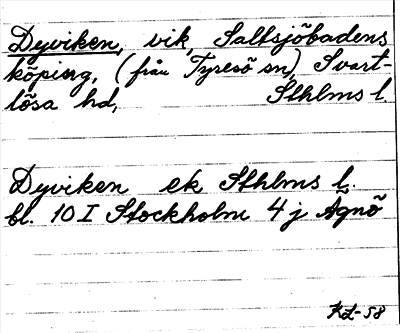 Dyviken, vik, Saltsjöbadens
köping, (från Tyresö sn), Svart-
lösa hd, Sthlms l.
Dyviken ek Sthlms l.
bl. 10 I Stockholm 4 j Ägnö
KL-58